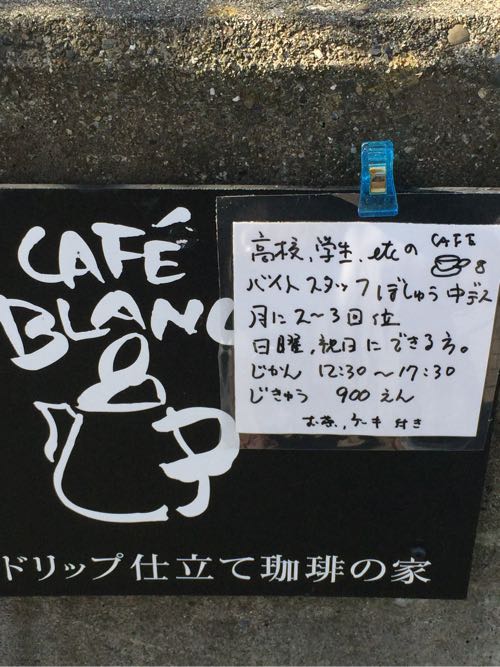 CAFÉ
BLANC
高校、学生、etcの
CAFE
バイトスタッフぼしゅう中デス
月に2〜3回位
日曜、祝日にできる方。
じかん 12:30〜17:30
じきゅう 900えん
お茶、ケーキ付き
ドリップ仕立て珈琲の家